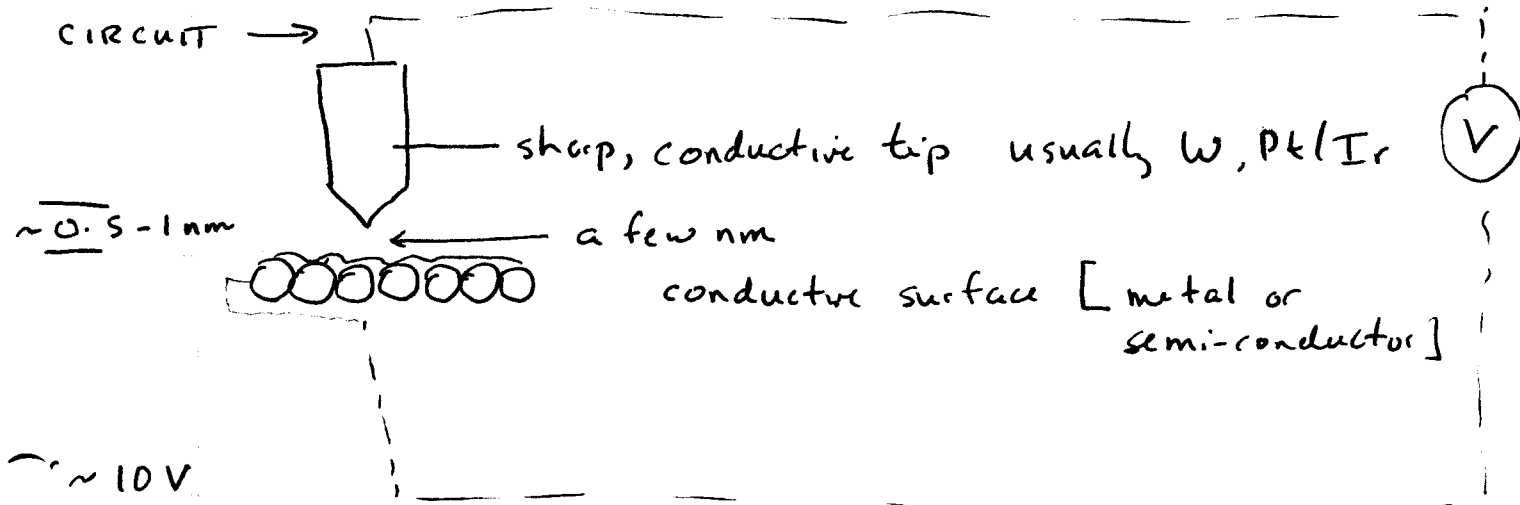 CIRCUIT →
sharp, conductive tip usually W, Pt/Ir
V
~0.5-1nm
a few nm
conductive surface [metal or
semi-conductor]
~10V